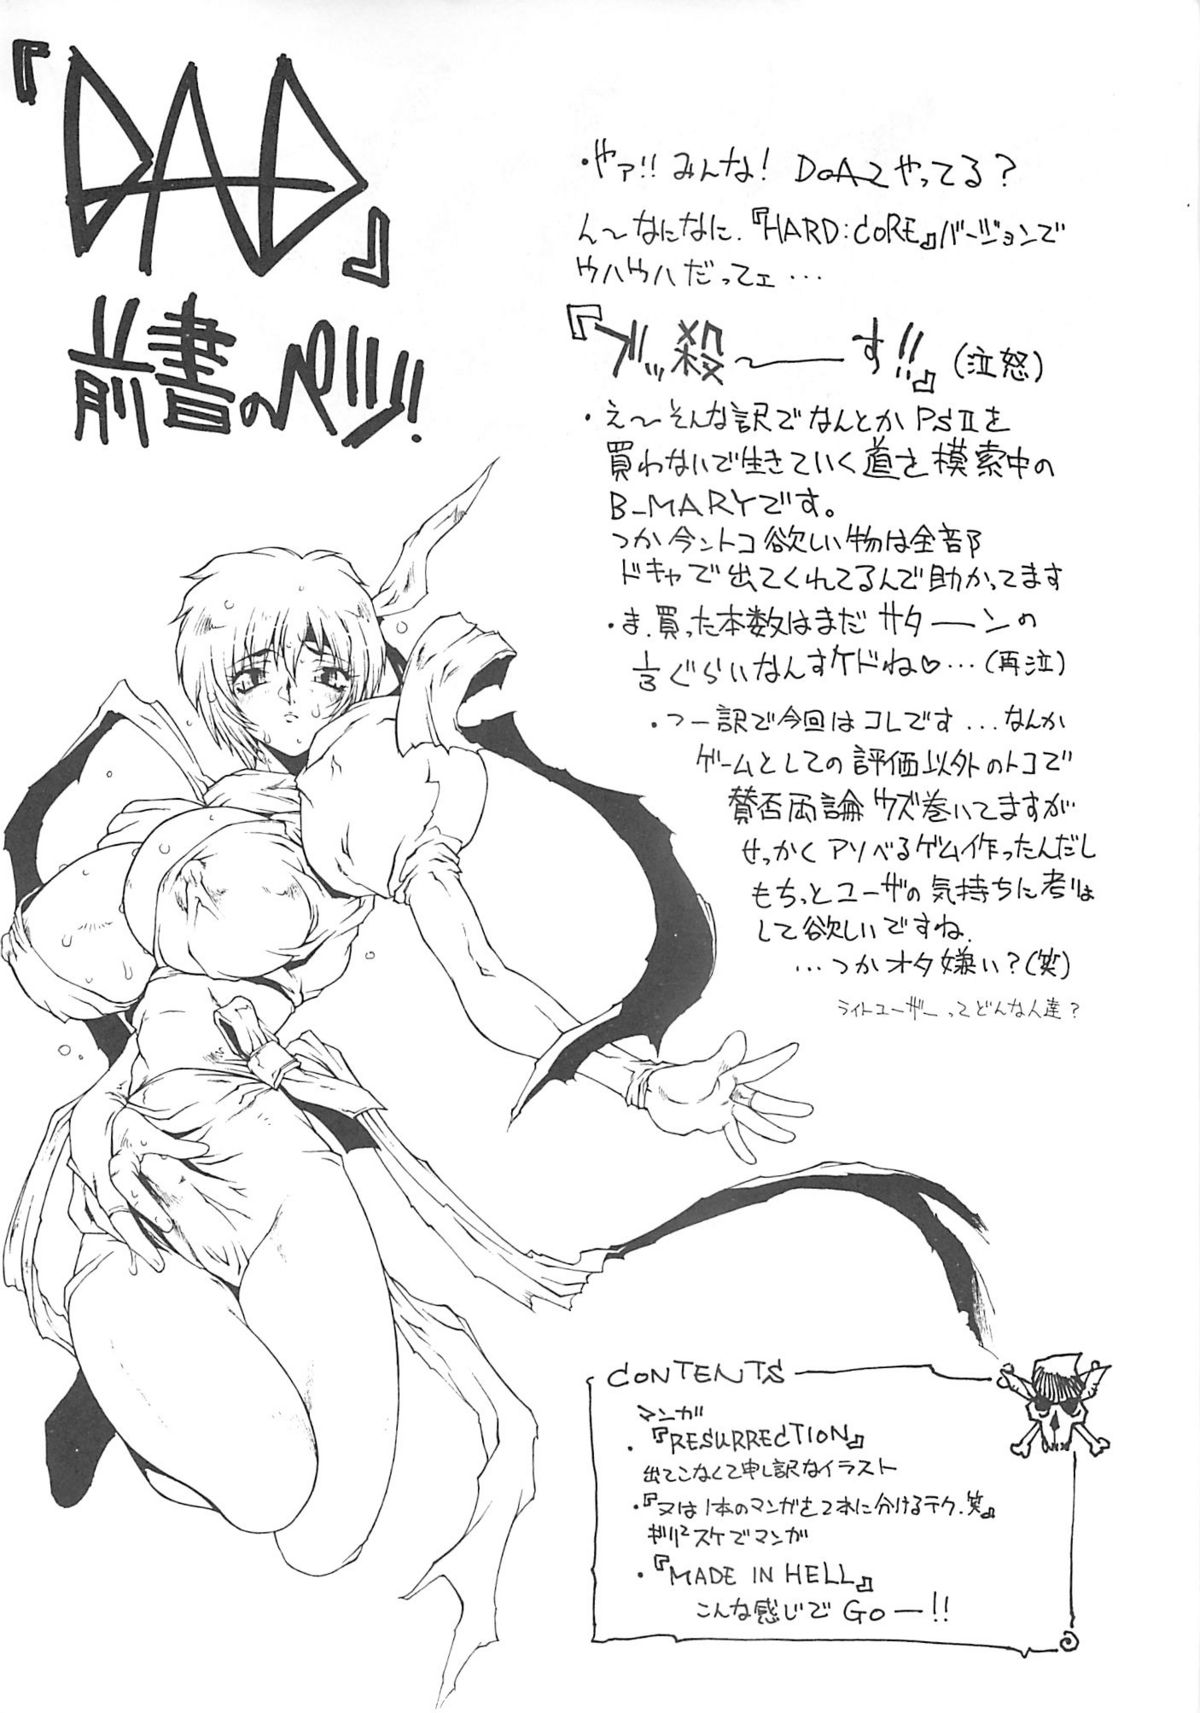 『DAD』
前書のページ!
・やァ!!みんな! DoA2やってる?
ん〜なになに.『HARD:CORE』バージョンで
ウハウハだってェ…
『ブッ殺〜――す!!』(泣怒)
・え〜そんな訳でなんとかPSⅡを
買わないで生きていく道を模索中の
B-MARYです。
つか今ントコ欲しい物は全部
ドキャで出てくれてるんで助かってます
・ま.買った本数はまだサターンの
1/3ぐらいなんすケドね♡…(再泣)
・つー訳で今回はコレです…なんか
ゲームとしての評価以外のトコで
賛否両論ウズ巻いてますが
せっかくアソべるゲム作ったんだし
もちっとユーザの気持ちに考りょ
して欲しいですね.
…つかオタ嫌い?(笑)
ライトユーザーってどんな人達?
CONTENTS
マンガ
・『RESURRECTION』
出てこなくて申し訳なイラスト
・『又は1本のマンガを2本に分けるテク.笑』
ギリ²スケでマンガ
・『MADE IN HELL』
こんな感じでGo―!!